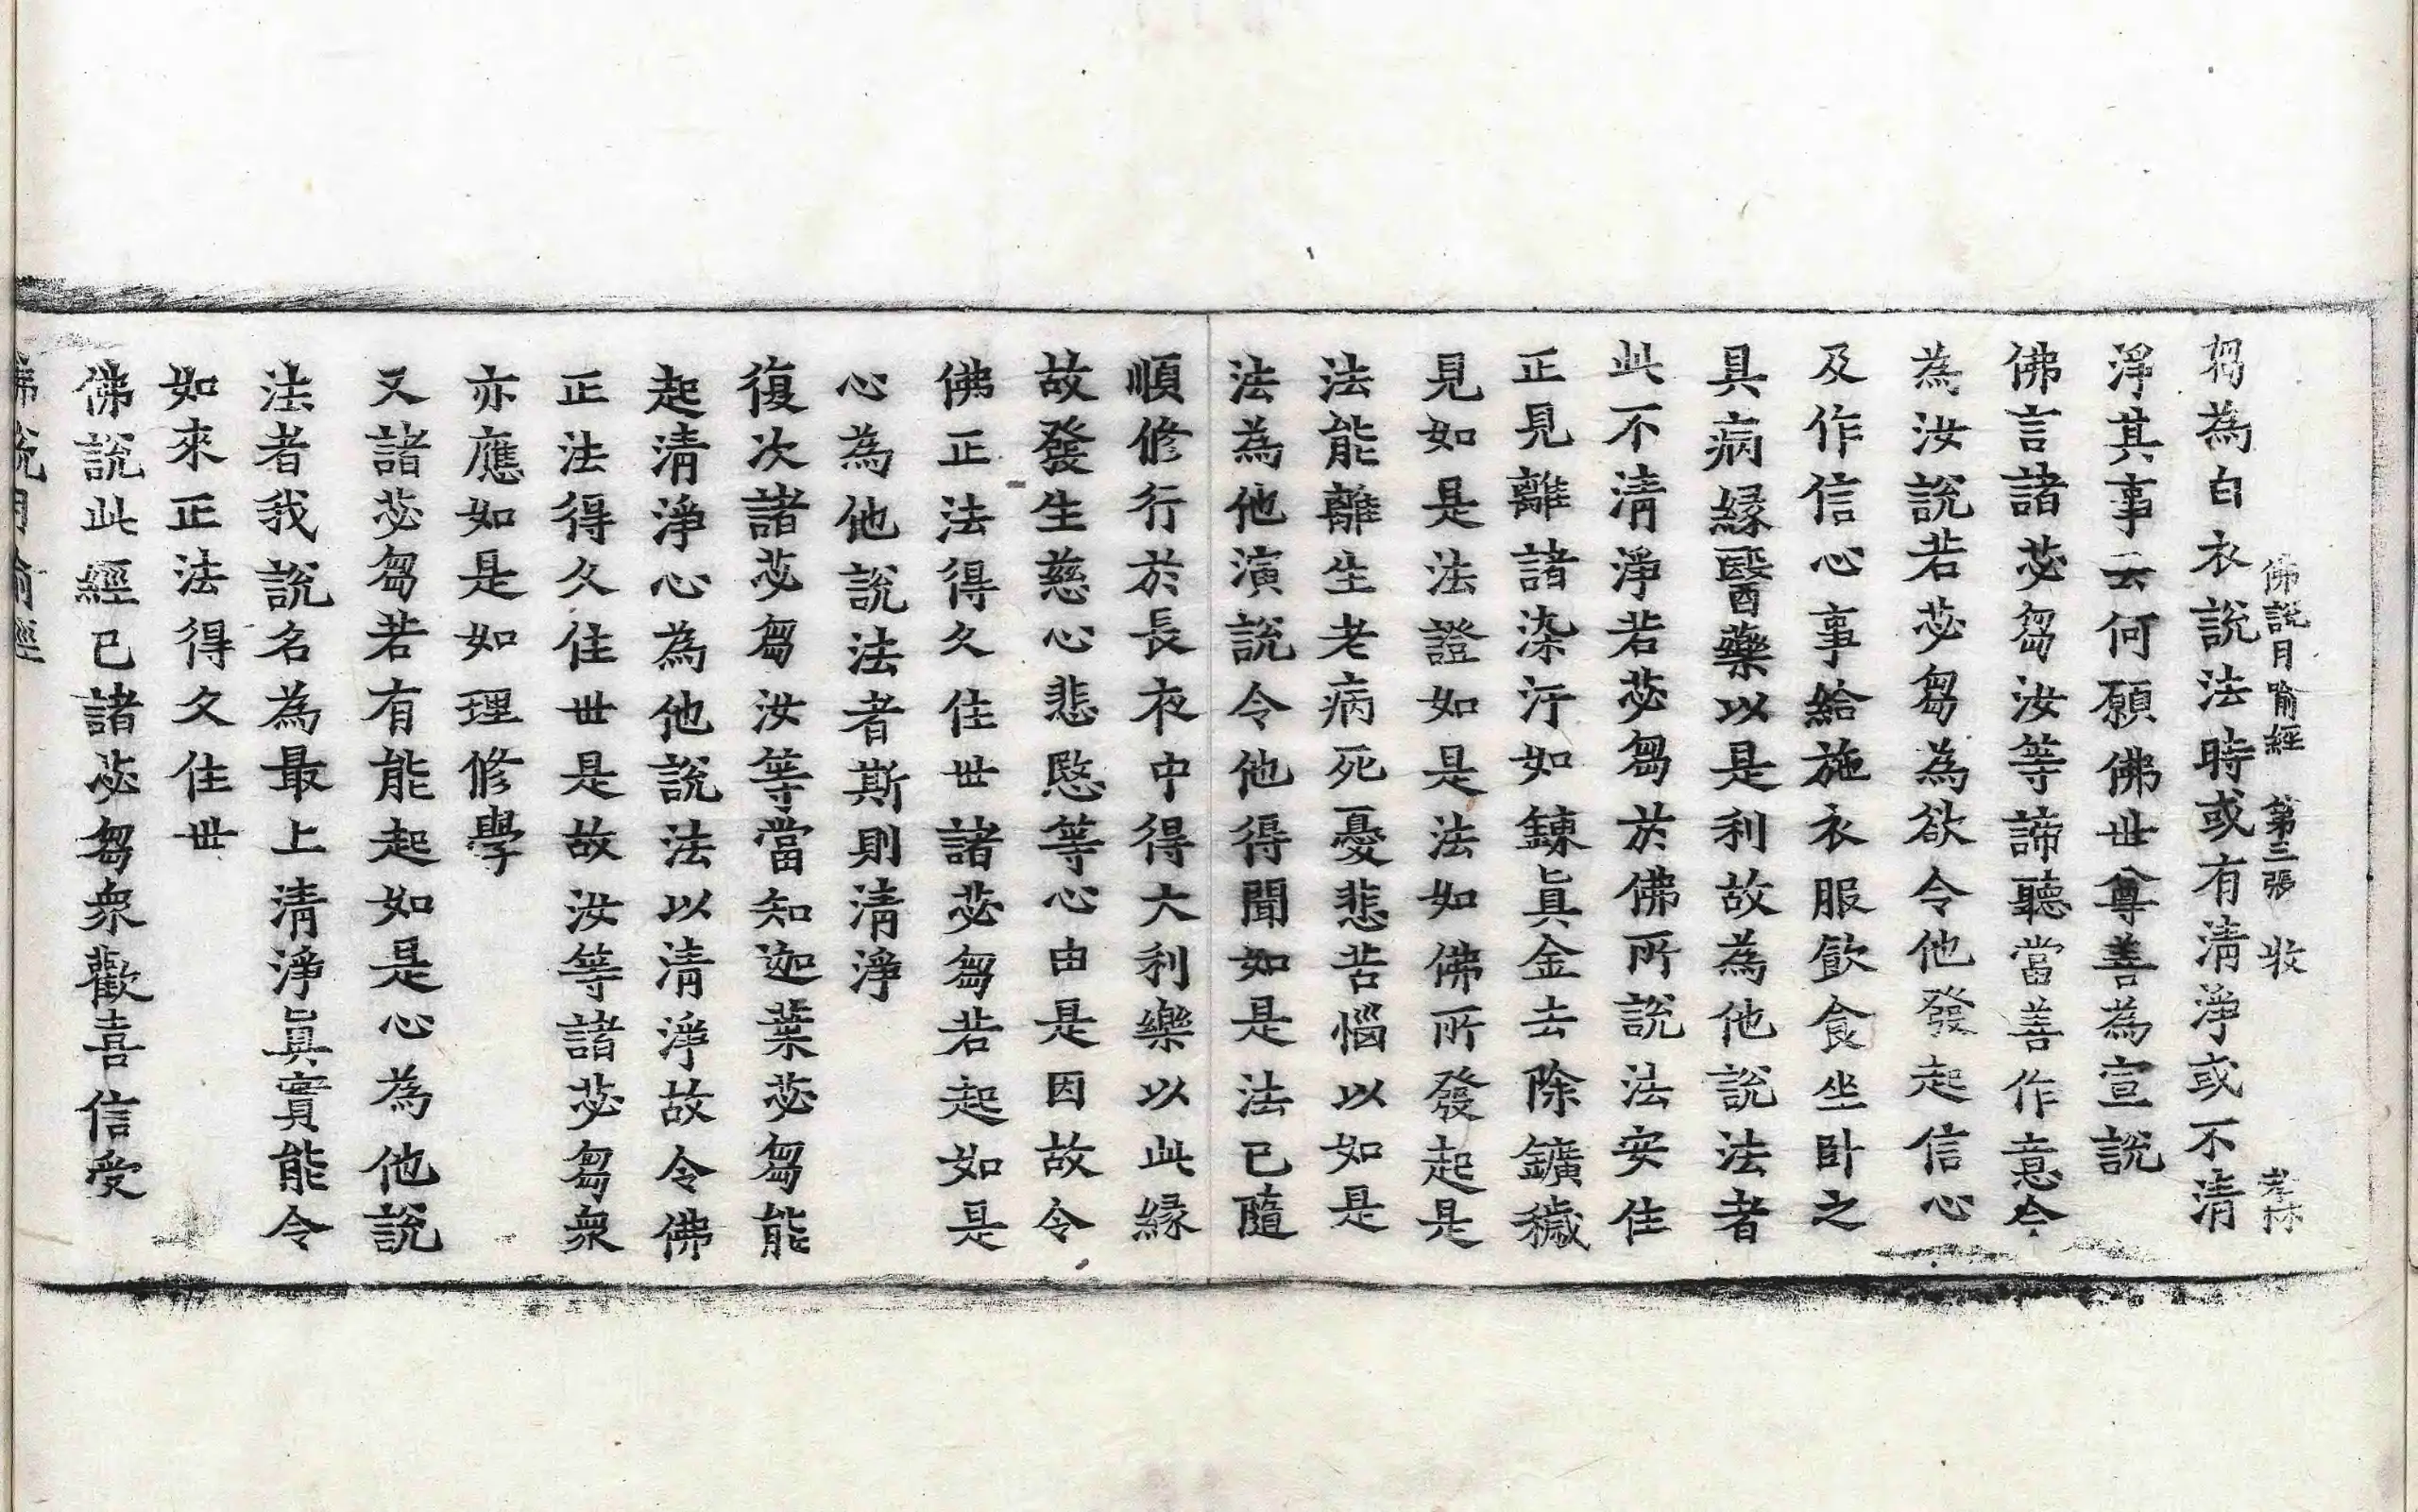 佛說月喻經 第三張 收 孝林
芻為白衣說法時或有清淨或不清
淨其事云何願佛世尊善為宣說
佛言諸苾芻汝等諦聽當善作意今
為汝說若苾芻為欲令他發起信心
及作信心事給施衣服飲食坐卧之
具病緣醫藥以是利故為他說法者
此不清淨若苾芻於佛所說法安住
正見離諸染汙如鍊眞金去除鑛穢
見如是法證如是法如佛所發起是
法能離生老病死憂悲苦惱以如是
法為他演說令他得聞如是法已隨
順修行於長夜中得大利樂以此緣
故發生慈心悲愍等心由是因故令
佛正法得久住世諸苾芻若起如是
心為他說法者斯則清淨
復次諸苾芻汝等當知迦葉苾芻能
起清淨心為他說法以清淨故令佛
正法得久住世是故汝等諸苾芻衆
亦應如是如理修學
又諸苾芻若有能起如是心為他說
法者我說名為最上清淨眞實能令
如來正法得久住世
佛說此經已諸苾芻衆歡喜信受
佛說月喻經